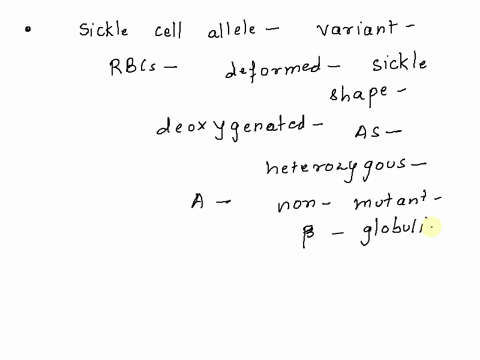 • Sickle cell allele - variant -
RBCs - deformed - sickle
shape -
deoxygenated - AS -
heterozygous -
A - non - mutant -
β - globuli